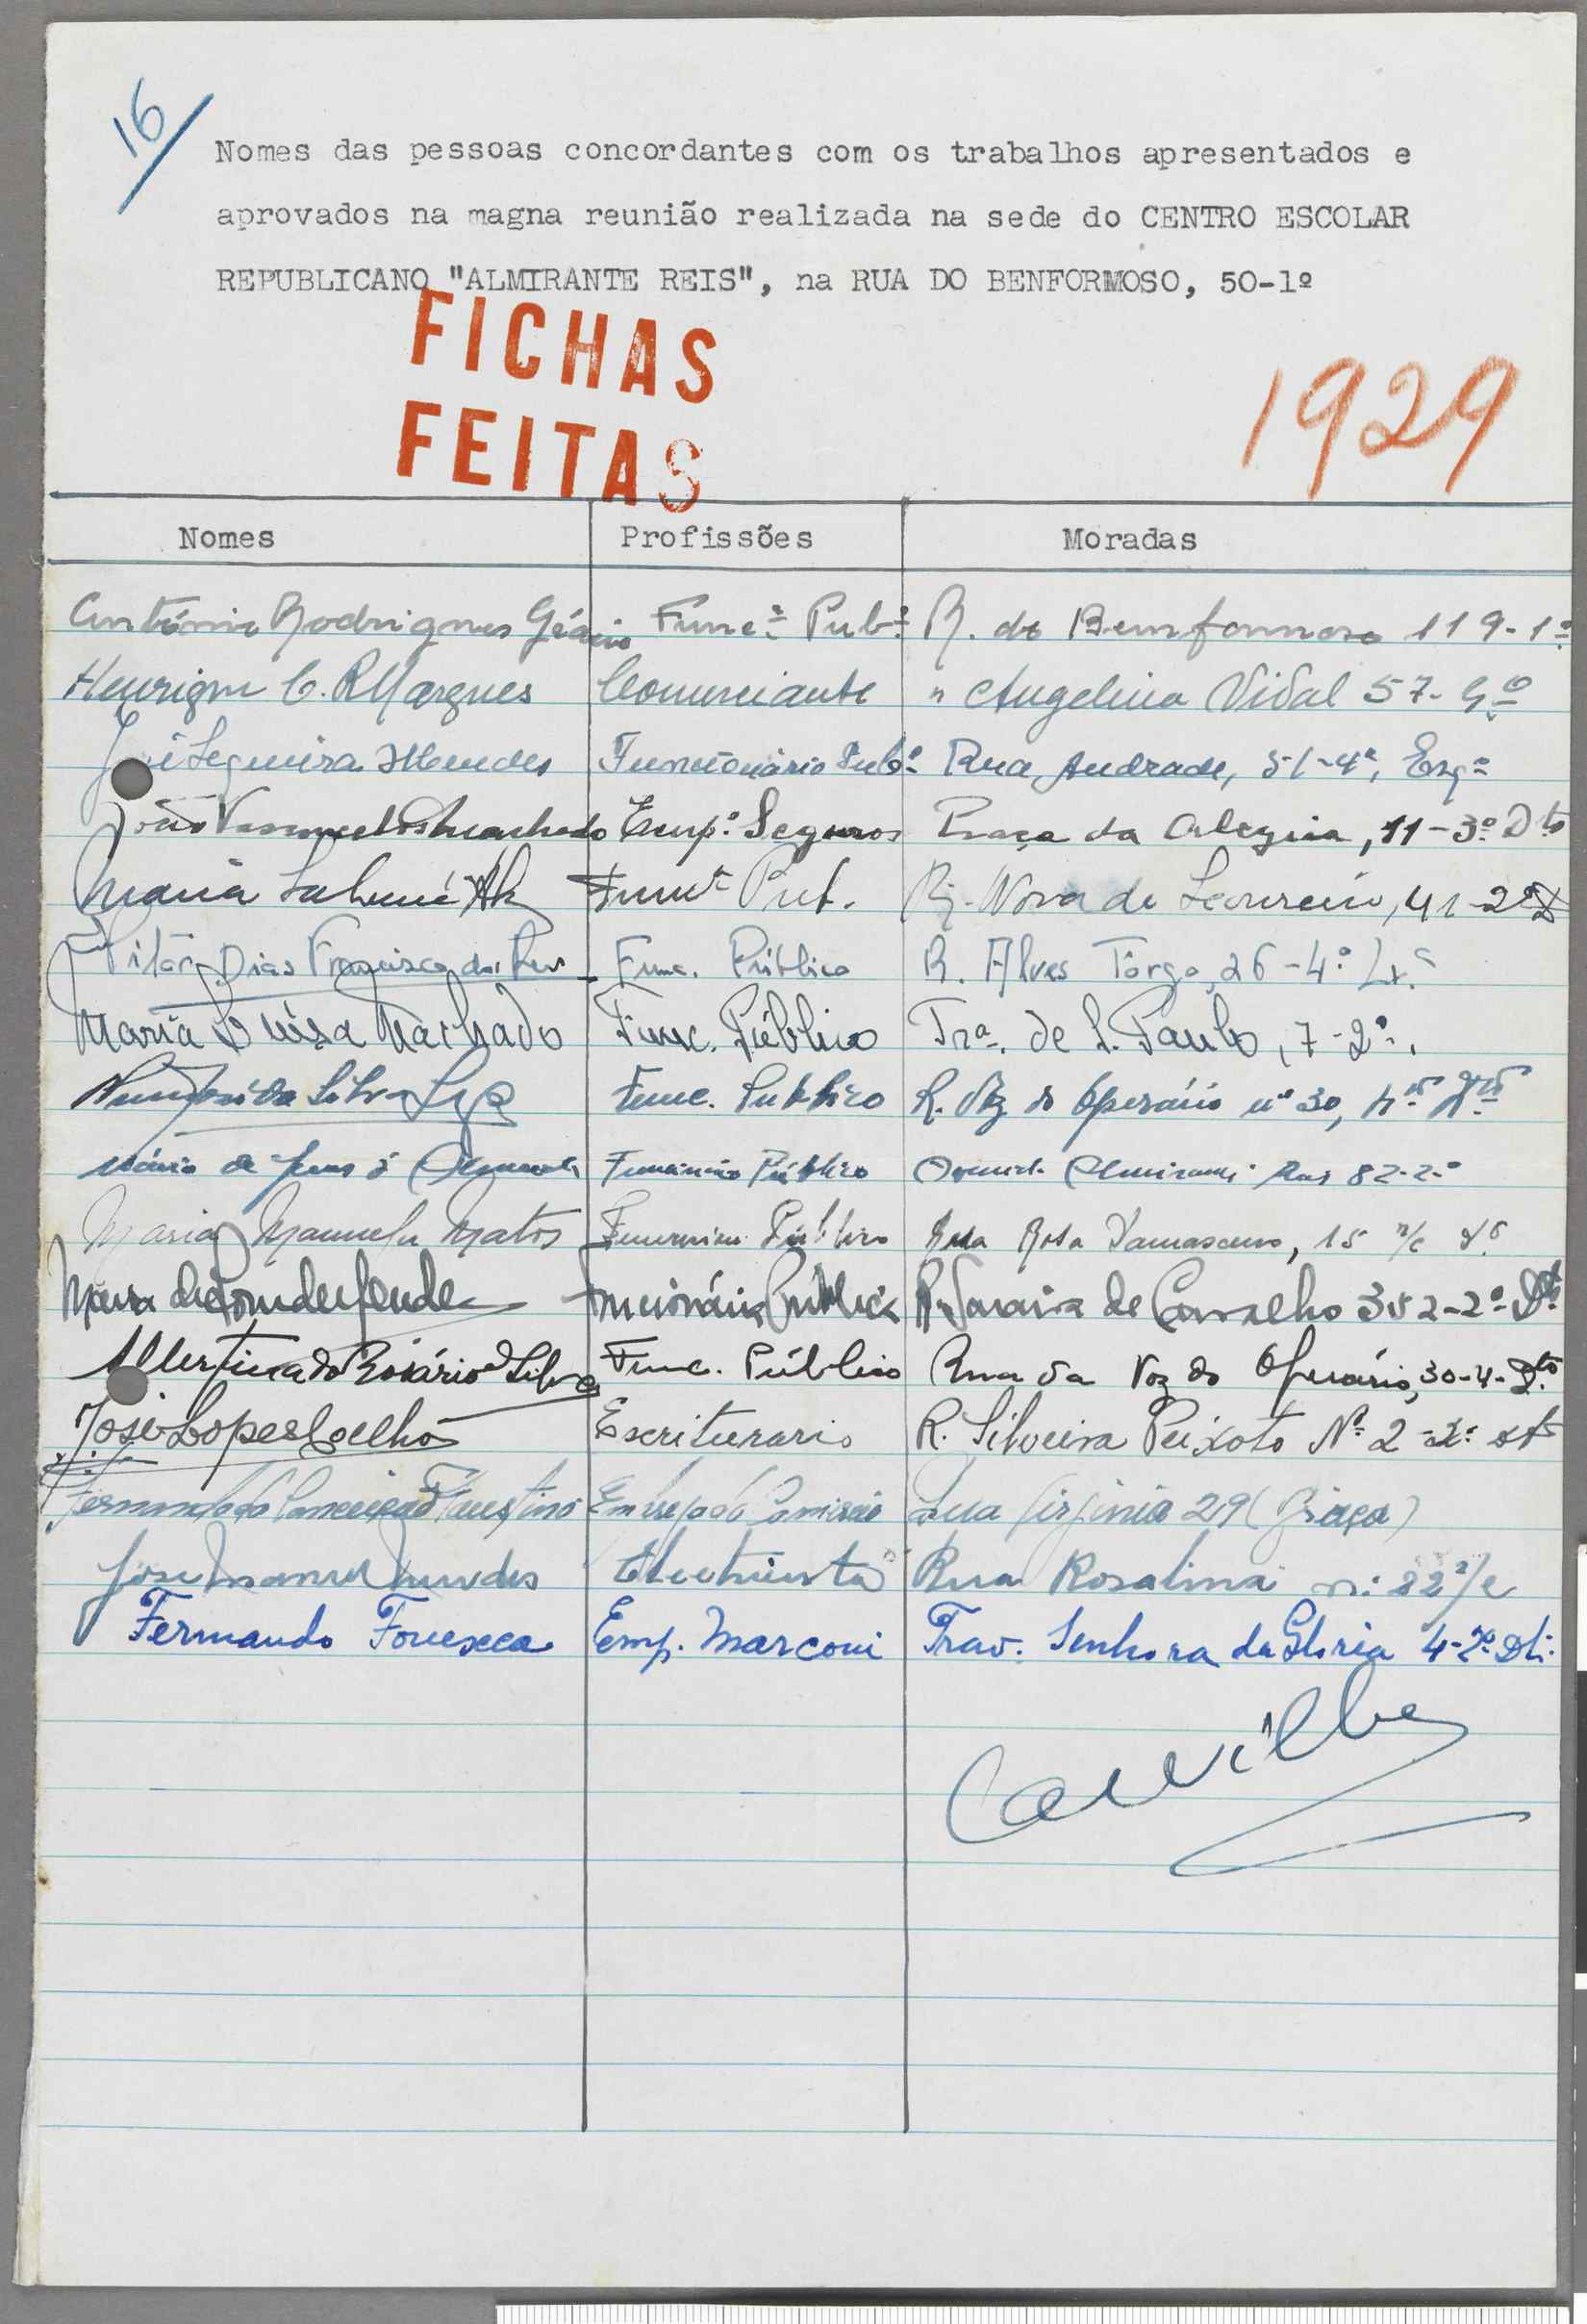 16
Nomes das pessoas concordantes com os trabalhos apresentados e
aprovados na magna reunião realizada na sede do CENTRO ESCOLAR
REPUBLICANO "ALMIRANTE REIS", na RUA DO BENFORMOSO, 50-1º
FICHAS
FEITAS
1929
Nomes Profissões Moradas
António Rodrigues Grácio Funcº Pubº R. do Bemformoso 119-1º
Henrique C. R. Marques Comerciante " Angelina Vidal 57-4º
José Sequeira Mendes Funcionário Pubº Rua Andrade, 51-4º, Esqº
João Vasconcelos Machado Empº Seguros Praça da Alegria, 11-3º Dto
Maria Pub. R. Nova do Loureiro, 41-2º
Vitór Dias Francisco da Func. Público R. Alves Torgo, 26-4º
Maria Luísa Machado Func. Público Trª. de S. Paulo, 7-2º.
Silva Func. Publico R. Voz do Operário nº 30, 4º Dtº
Mário de Funcionário Público Almirante Reis 82-2º
Maria Manuela Matos Público Rua Rosa Damasceno, 15 r/c
Funcionária Publica R. Saraiva de Carvalho 352-2º-Dtº
Albertina do Rosário Silva Func. Público Rua da Voz do Operário, 30-4-Dto
José Lopes Coelho Escriturario R. Silveira Peixoto Nº 2-2º
Fernando da Conceição Faustino Empregado Comércio Rua Virginia 29 (Graça)
José Manuel Mendes Electricista Rua Rosalina nº 22 r/c
Fernando Fonseca Emp. Marconi Trav. Senhora da Glória 4-2º Dtº